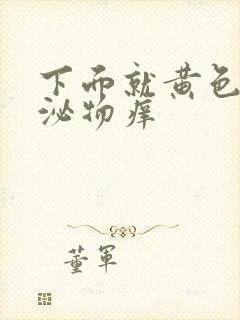 下面就黄色
泌物痒
董军